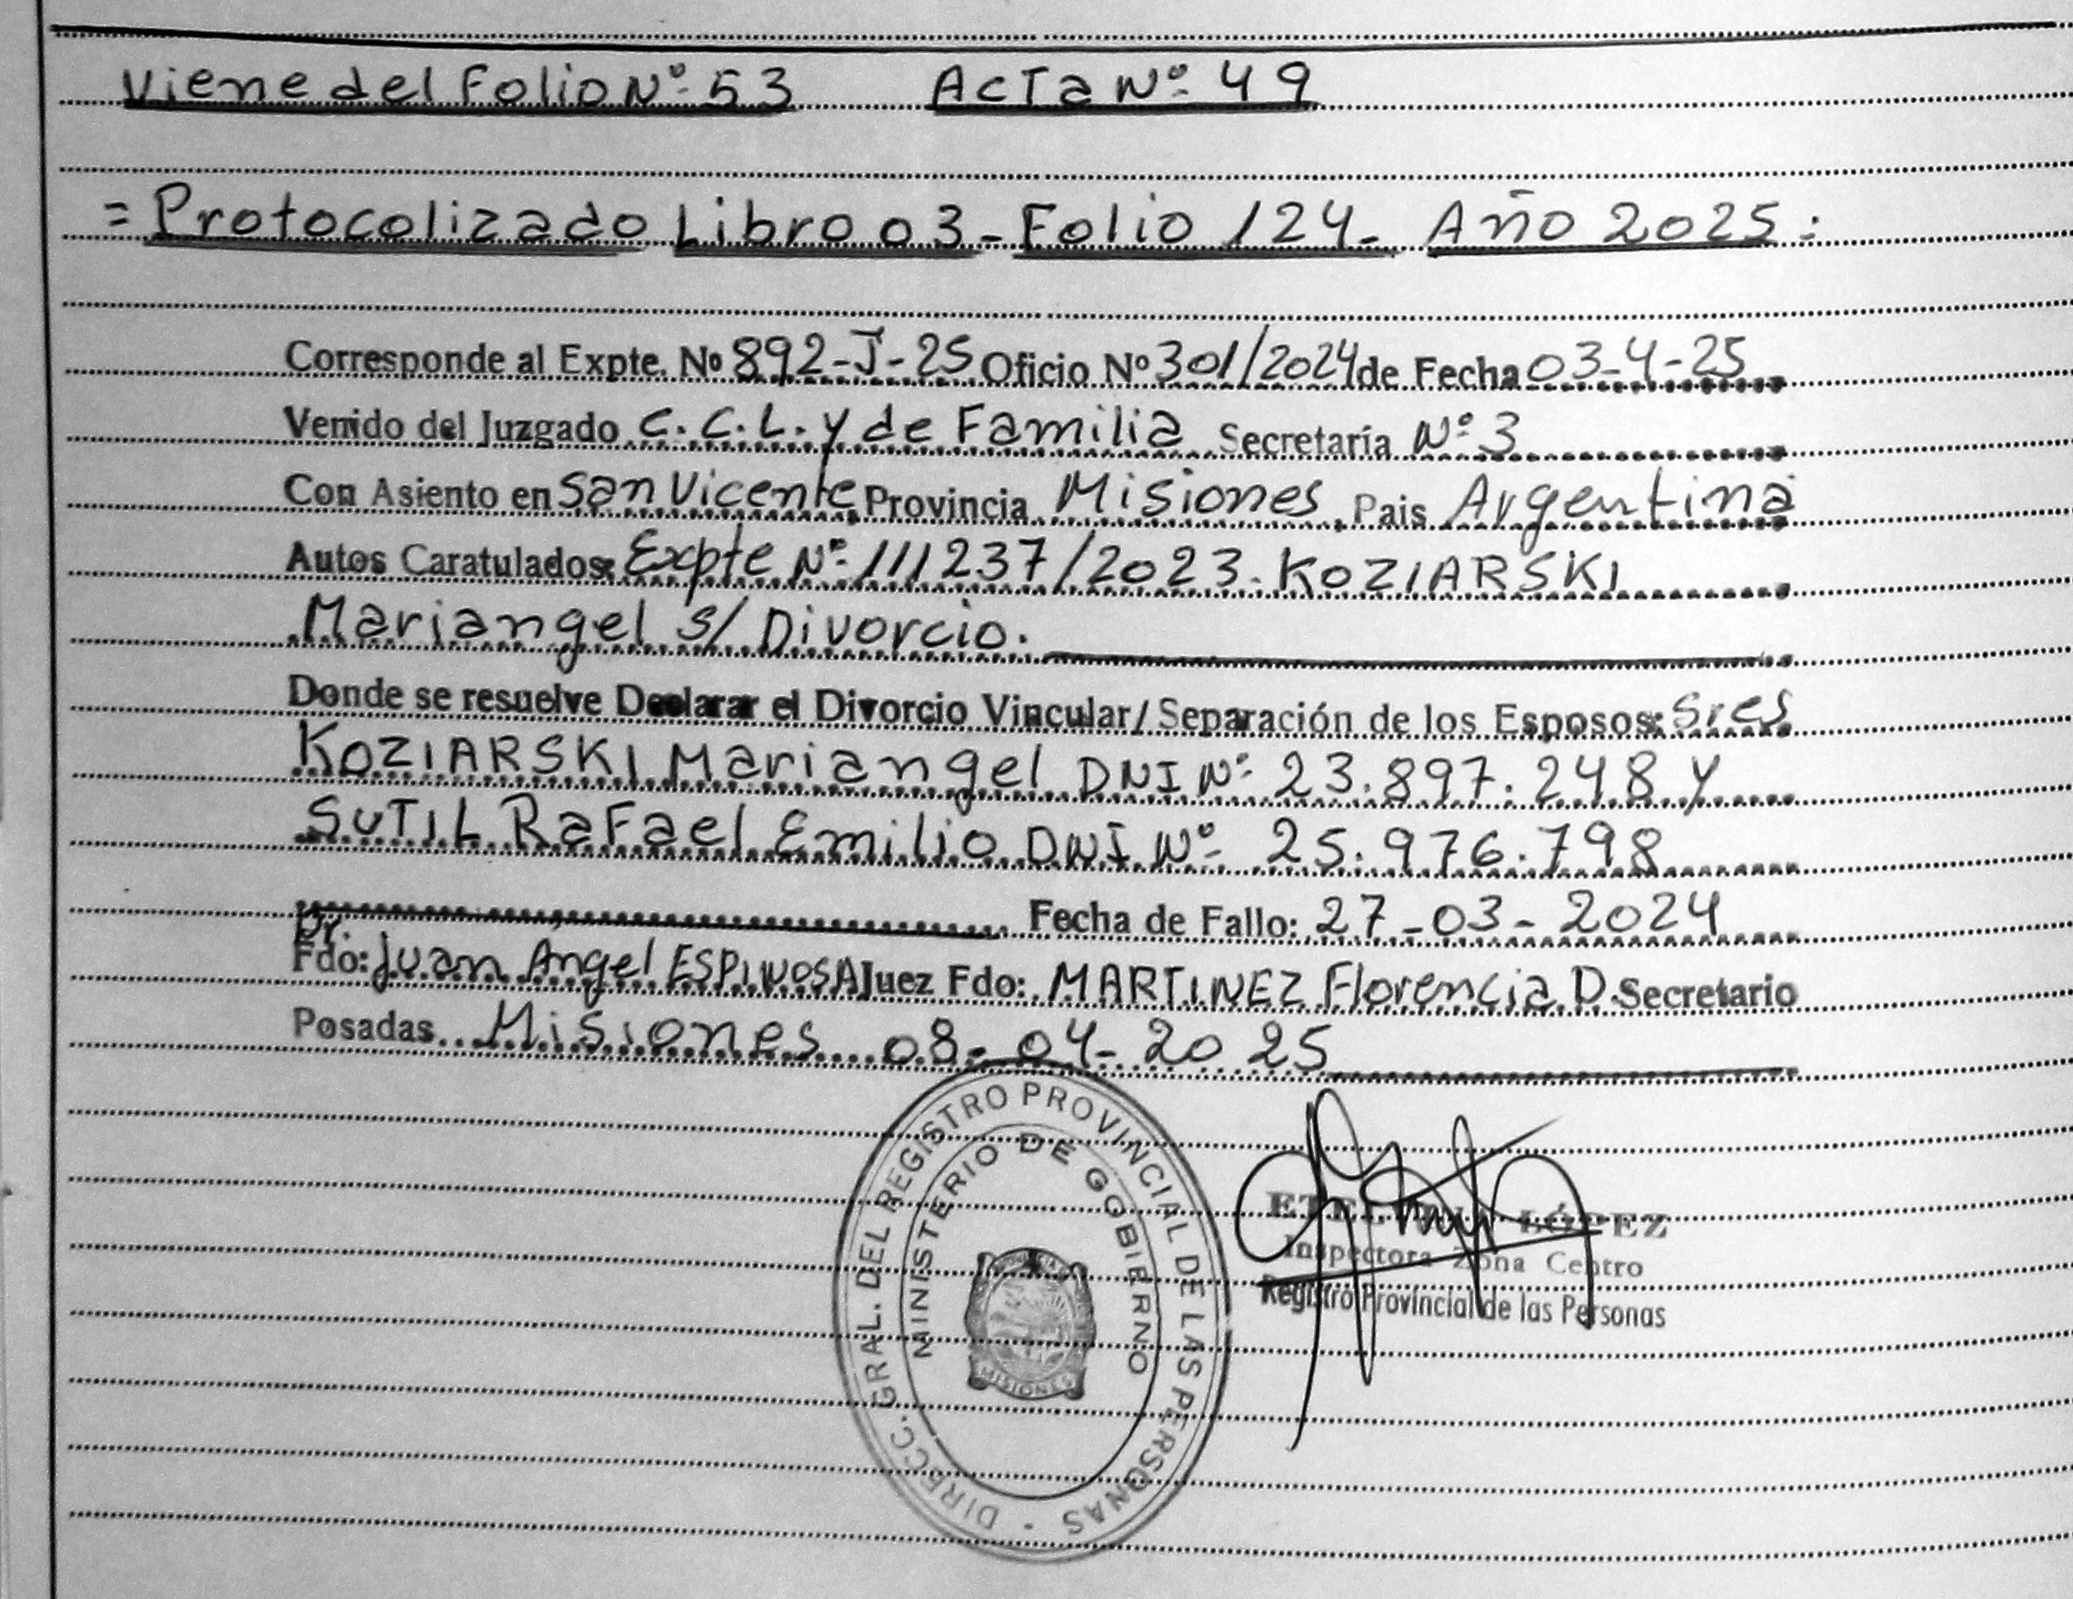 Viene del Folio Nº 53 Acta Nº 49
= Protocolizado Libro 03 - Folio 124 - Año 2025 :
Corresponde al Expte. Nº 892-J-25 Oficio Nº 301/2024 de Fecha 03-4-25
Venido del Juzgado C.C.L. y de Familia Secretaría Nº 3
Con Asiento en San Vicente Provincia Misiones Pais Argentina
Autos Caratulados: Expte Nº 111237/2023. KOZIARSKI
Mariangel s/ Divorcio.
Donde se resuelve Declarar el Divorcio Vincular/Separación de los Esposos: Sres
KOZIARSKI Mariangel DNI Nº 23.897.248 y
SUTIL Rafael Emilio DNI Nº 25.976.798
Fecha de Fallo: 27-03-2024
Dr.
Fdo: Juan Angel ESPINOSA Juez Fdo: MARTINEZ Florencia D. Secretario
Posadas Misiones 08-04-2025
DIRECC. GRAL. DEL REGISTRO PROVINCIAL DE LAS PERSONAS
MINISTERIO DE GOBIERNO
MISIONES
LÓPEZ
Inspectora Zona Centro
Registro Provincial de las Personas